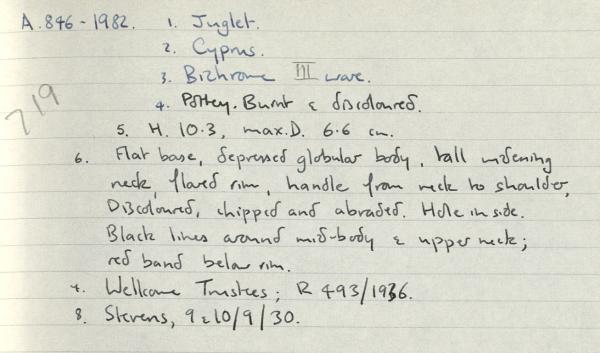 A.846-1982. 1. Juglet.
2. Cyprus.
3. Bichrome III ware.
219
4. Pottery. Burnt & discoloured.
5. H. 10.3, max.D. 6.6 cm.
6. Flat base, depressed globular body, tall widening
neck, flared rim, handle from neck to shoulder,
Discoloured, chipped and abraded. Hole in side.
Black lines around mid-body & upper neck;
red band below rim.
7. Wellcome Trustees; R 493/1936.
8. Stevens, 9 & 10/9/30.